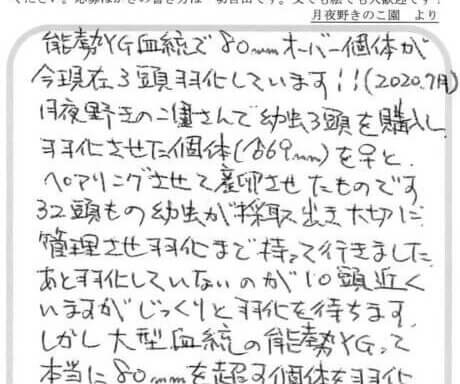 ください。応募はがきの書き方は一切自由です。文でも絵でも大歓迎です！
月夜野きのこ園 より
能勢YG血統で80mmオーバー個体が
今現在3頭羽化しています!!(2020.7月)
月夜野きのこ園さんで幼虫3頭を購入し
羽化させた個体(♂69mm)を早と、
ペアリングさせて産卵させたものです
32頭もの幼虫が採取出き大切に
管理させ羽化まで持って行きました。
あと羽化していないのが10頭近く
いますがじっくりと羽化を待ちます。
しかし大型血統の能勢YGって
本当に80mmを超す個体を羽化